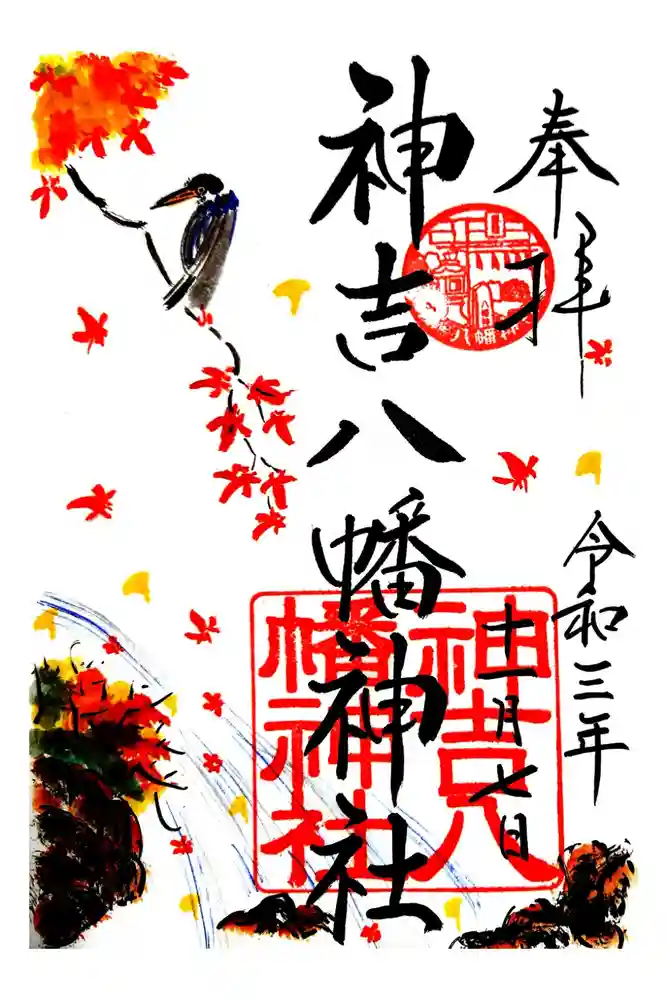 奉拝
令和三年
十一月七日
神吉八幡神社
神吉八
幡神社
八幡神